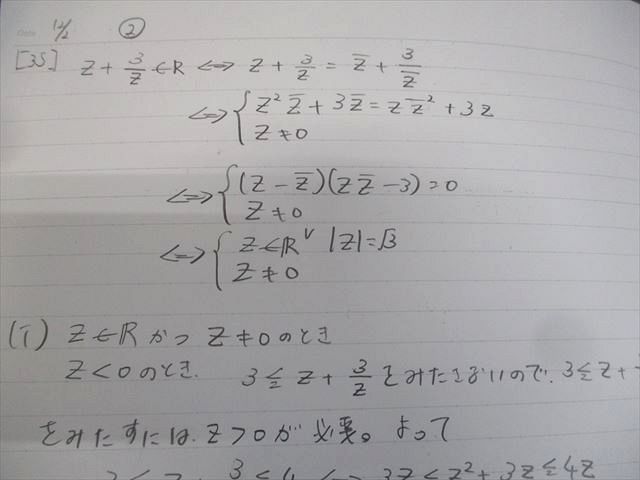 12/2 ②
[35] z + 3/z ∈ R ⇔ z + 3/z = z̄ + 3/z̄
⇔ { z² z̄ + 3z̄ = z z̄² + 3z
z ≠ 0
⇔ { (z - z̄)(z z̄ - 3) = 0
z ≠ 0
⇔ { z ∈ R ∨ |z| = √3
z ≠ 0
(i) z ∈ R かつ z ≠ 0 のとき
z < 0 のとき. 3 ≦ z + 3/z をみたさないので. 3 ≦ z +
をみたすには. z > 0 が 必要。よって
3/ ≦ 4 ⇔ 3z ≦ z² + 3z ≦ 4z